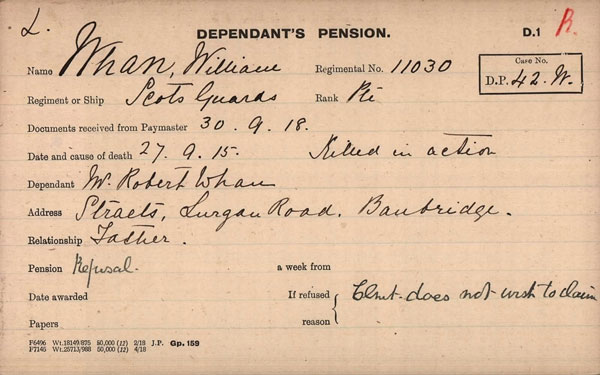 L. DEPENDANT'S PENSION. D.1 R.
Name Whan, William Regimental No. 11030 Case No.
Regiment or Ship Scots Guards Rank Pte D.P. 42. W.
Documents received from Paymaster 30. 9. 18.
Date and cause of death 27. 9. 15. Killed in action
Dependant Mr. Robert Whan
Address Lurgan Road. Banbridge.
Relationship Father.
Pension Refusal. a week from
Date awarded If refused Clmt. does not wish to claim
Papers reason
F6496 Wt.18149/875 50,000 (12) 2/18 J.P. Gp. 159
F7146 Wt.25713/988 50,000 (12) 4/18